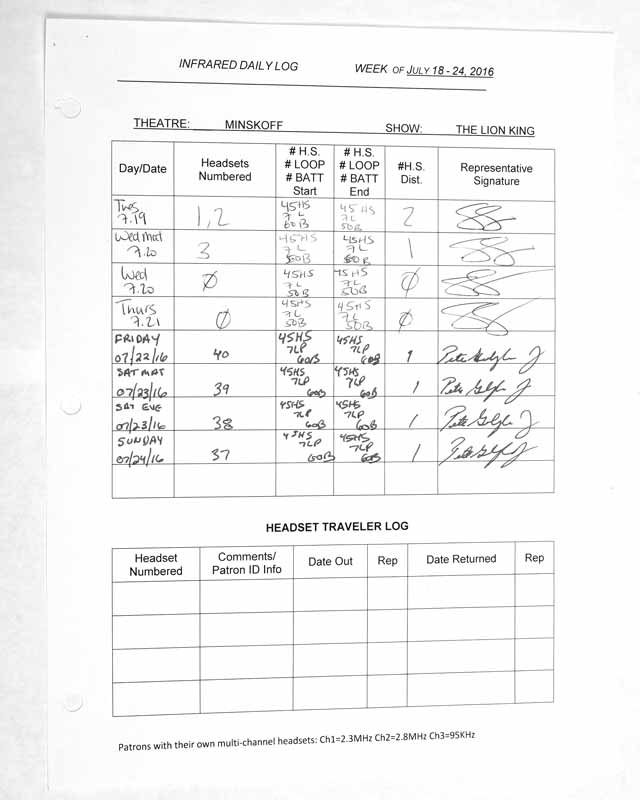 INFRARED DAILY LOG WEEK OF JULY 18 - 24, 2016
THEATRE: MINSKOFF SHOW: THE LION KING
Day/Date Headsets Numbered # H.S. # LOOP # BATT Start # H.S. # LOOP # BATT End #H.S. Dist. Representative Signature
Tues 7.19 1,2 45HS 7L 60B 45HS 7L 50B 2
Wed Mat 7.20 3 45HS 7L 50B 45HS 7L 50B 1
Wed 7.20 Ø 45HS 7L 50B 45HS 7L 50B Ø
Thurs 7.21 Ø 45HS 7L 50B 45HS 7L 50B Ø
FRIDAY 07/22/16 40 45HS 7LP 60B 45HS 7LP 60B 1 Pete
SAT MAT 07/23/16 39 45HS 7LP 60B 45HS 7LP 60B 1 Pete
SAT EVE 07/23/16 38 45HS 7LP 60B 45HS 7LP 60B 1 Pete
SUNDAY 07/24/16 37 45HS 7LP 60B 45HS 7LP 60B 1 Pete
HEADSET TRAVELER LOG
Headset Numbered Comments/ Patron ID Info Date Out Rep Date Returned Rep
Patrons with their own multi-channel headsets: Ch1=2.3MHz Ch2=2.8MHz Ch3=95KHz